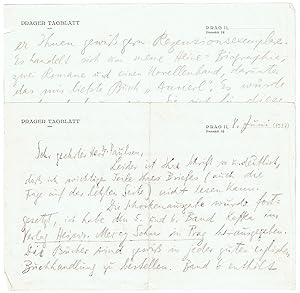 PRAGER TAGBLATT
PRAG II,
er Ihnen gewiß gern Rezensionsexemplare.
Es handelt sich um meine Heine-Biographie,
zwei Romane und einen Novellenband, darunter
das mir liebste Buch „Annerl“. Es würde
PRAGER TAGBLATT
PRAG II,
8. Juni (1937)
Sehr geehrter Herr Paulsen,
Leider ist Ihre Schrift so undeutlich,
daß ich wichtige Teile Ihres Briefes (auch die
Frage auf der letzten Seite) nicht lesen kann.
Die Kafkaausgabe wurde fort-
gesetzt, ich habe den 5. und 6. Band Kafka im
Verlag Heinr. Mercy Sohn in Prag herausgegeben.
Die Bücher sind gewiß in jeder guten englischen
Buchhandlung zu bestellen. Band 6 enthält